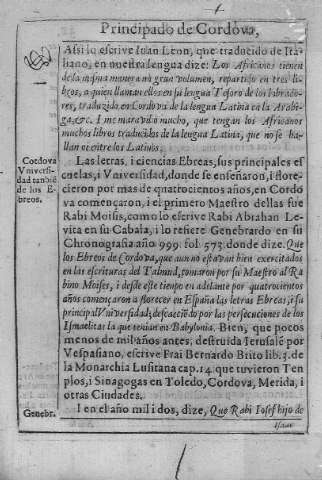 Principado de Cordova,
Assi lo escrive Iuan Leon, que traducido de Ita-
liano, en nuestra lengua dize: Los Africanos tienen
de la misma manera un gra volumen, repartido en tres li-
bros, a quien llaman ellos en su lengua Tesoro de los labrado-
res, traduzido en Cordova de la lengua Latina en la Arabi-
ga, &c. I me maravillo mucho, que tengan los Africanos
muchos libros traducidos de la lengua Latina, que no se ha-
llan ei entre los Latinos.
Las letras, i ciencias Ebreas, sus principales es
cuelas, i Vniversidad, donde se enseñaron, i flore-
cieron por mas de quatrocientos años, en Cordo
va començaron, i el primero Maestro dellas fue
Rabi Moisis, como lo escrive Rabi Abrahan Le-
vita en su Cabala, i lo refiere Genebrardo en su
Chronografia año 999. fol. 573. donde dize. Que
los Ebreos de Cordova, que aun no estavan bien exercitados
en las escrituras del Talmud, tomaron por su Maestro al Ra
bino Moises, i desde este tiempo en adelante por quatrocientos
años començaron a florecer en España las letras Ebreas, i su
principal Vniversidad; descaeciẽdo por las persecuciones de los
Ismaelitas la que tenian en Babylonia. Bien, que pocos
menos de mil años antes, destruida Ierusalẽ por
Vespasiano, escrive Frai Bernardo Brito lib. 5. de
la Monarchia Lusitana cap. 14. que tuvieron Tem
plos, i Sinagogas en Toledo, Cordova, Merida, i
otras Ciudades.
I en el año mil i dos, dize, Que Rabi Iosef hijo de
Isaac
Cordova
Vniversi-
dad tambiẽ
de los E-
breos.
Genebr.